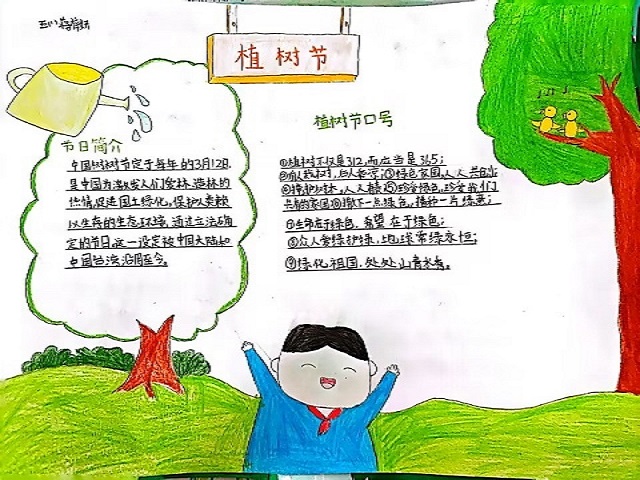 植树节
节日简介
中国树树节定于每年的3月12日,
是中国为激发人们爱林、造林的
热情,促进国土绿化,保护人类赖
以生存的生态环境,通过立法确
定的节日。这一设定被中国大陆和
中国台湾沿用至今。
植树节口号
①植树不仅是312,而应当是365;
②前人栽树,后人乘凉;③绿色家园,人人共创;
④撒下一点绿色,播种一片绿意;
⑦生命在于绿色,希望在于绿色;
⑧众人爱绿护绿,地球常绿永恒;
⑨绿化祖国,处处山青水秀。